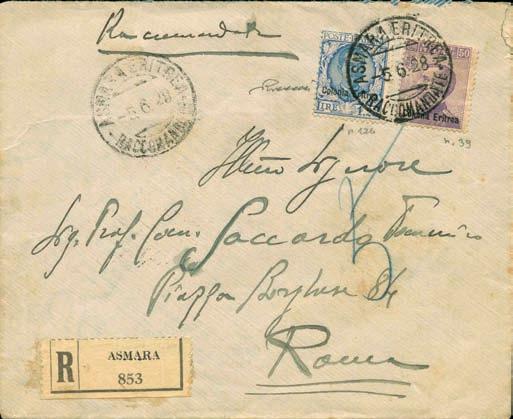 Raccomandata
ASMARA ERITREA
-5.6.28
RACCOMANDATE
POSTE
LIRE
Colonia
50
Eritrea
ASMARA ERITREA
-5.6.28
RACCOMANDATE
n. 126
n. 39
Illmo Signore
Sig. Prof. Com. Saccardo Domenico
Piazza Borghese 84
Roma
R
ASMARA
853